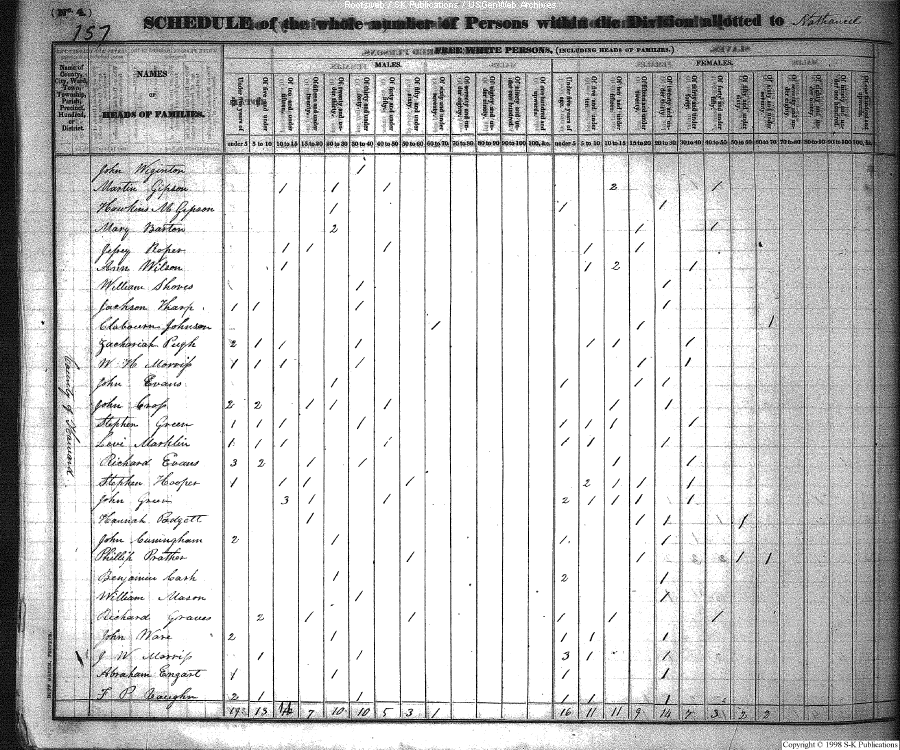 Rootsweb / S-K Publications / USGenWeb Archives
(No. 4.)
157
SCHEDULE of the whole number of Persons within the Division allotted to Nathaniel
FREE WHITE PERSONS, (INCLUDING HEADS OF FAMILIES.)
MALES. FEMALES.
Name of County, City, Ward, Town, Township, Parish, Precinct, Hundred, or District.
NAMES
OF
HEADS OF FAMILIES.
under 5 5 to 10 10 to 15 15 to 20 20 to 30 30 to 40 40 to 50 50 to 60 60 to 70 70 to 80 80 to 90 90 to 100 100, &c. under 5 5 to 10 10 to 15 15 to 20 20 to 30 30 to 40 40 to 50 50 to 60 60 to 70 70 to 80 80 to 90 90 to 100 100, &c.
County of Howard
John Wiginton 1
Martin Gipson 1 1 1 2 1
Hawkins M Gipson 1 1 1
Mary Barton 2 1 1
Jessy Roper 1 1 1 1 1
Ann Wilson 1 1 2 1
William Shoves 1 1
Jackson Tharp 1 1 1 1
Clabourn Johnson 1 1 1
Zachariah Pugh 2 1 1 1 1 1 1
W H Morriss 1 1 1 1 1 1
John Evans 1 1 1 1
John Cross 2 2 1 1 1 1 1
Stephen Green 1 1 1 1 1 1 1 1
Levi Marklin 1 1 1 1 1 1 1
Richard Evans 3 2 1 1 1 1
Stephen Hooper 1 1 1 1 2 1 1 1
John Green 3 1 1 2 1 1 1 1
Hannah Padgett 1 1 1 1
John Cuningham 2 1 1 1
Phillip Prather 1 1 1 1
Benjamin Cash 1 2 1
William Mason 1 1
Richard Graves 2 1 1 1 1 1
John Ware 2 1 1 1 1
J W Morriss 1 1 3 1 1
Abraham Engart 1 1 1 1
F P Vaughn 2 1 1 1 1 1
19 13 14 7 10 10 5 3 1 16 11 11 9 14 7 3 2 2
Copyright © 1998 S-K Publications